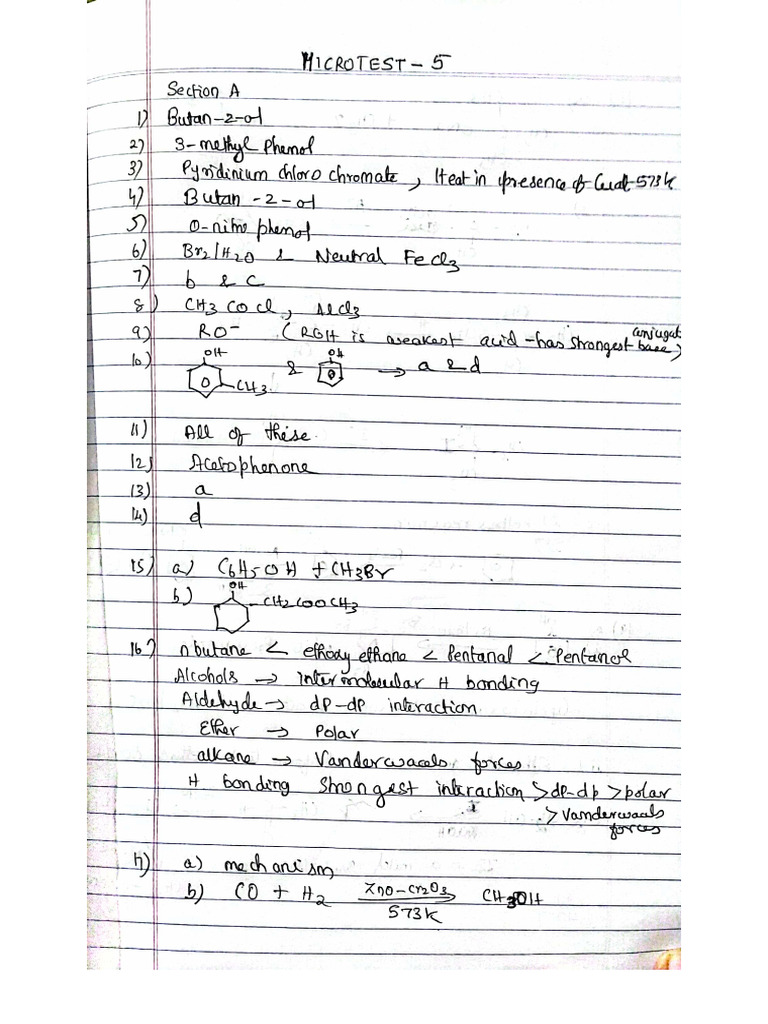 MICROTEST - 5
Section A
1) Butan-2-ol
2) 3-methyl phenol
3) Pyridinium chloro chromate, Heat in presence of Cu at 573K
4) Butan-2-ol
5) O-nitro phenol
6) Br2/H2O & Neutral FeCl3
7) b & c
8) CH3COCl, AlCl3
9) RO- (ROH is weakest acid - has strongest conjugate base)
10) OH CH3 & OH → a & d
11) All of these
12) Acetophenone
13) a
14) d
15) a) C6H5OH + CH3Br
b) OH -CH2COOCH3
16) n butane < ethoxy ethane < Pentanal < Pentanol
Alcohols → intermolecular H bonding
Aldehyde → dp-dp interaction
Ether → Polar
alkane → Vanderwaals forces
H bonding strongest interaction > dp-dp > polar
> Vanderwaals
forces
17) a) mechanism
b) CO + H2 ZnO-Cr2O3 CH3OH
573K